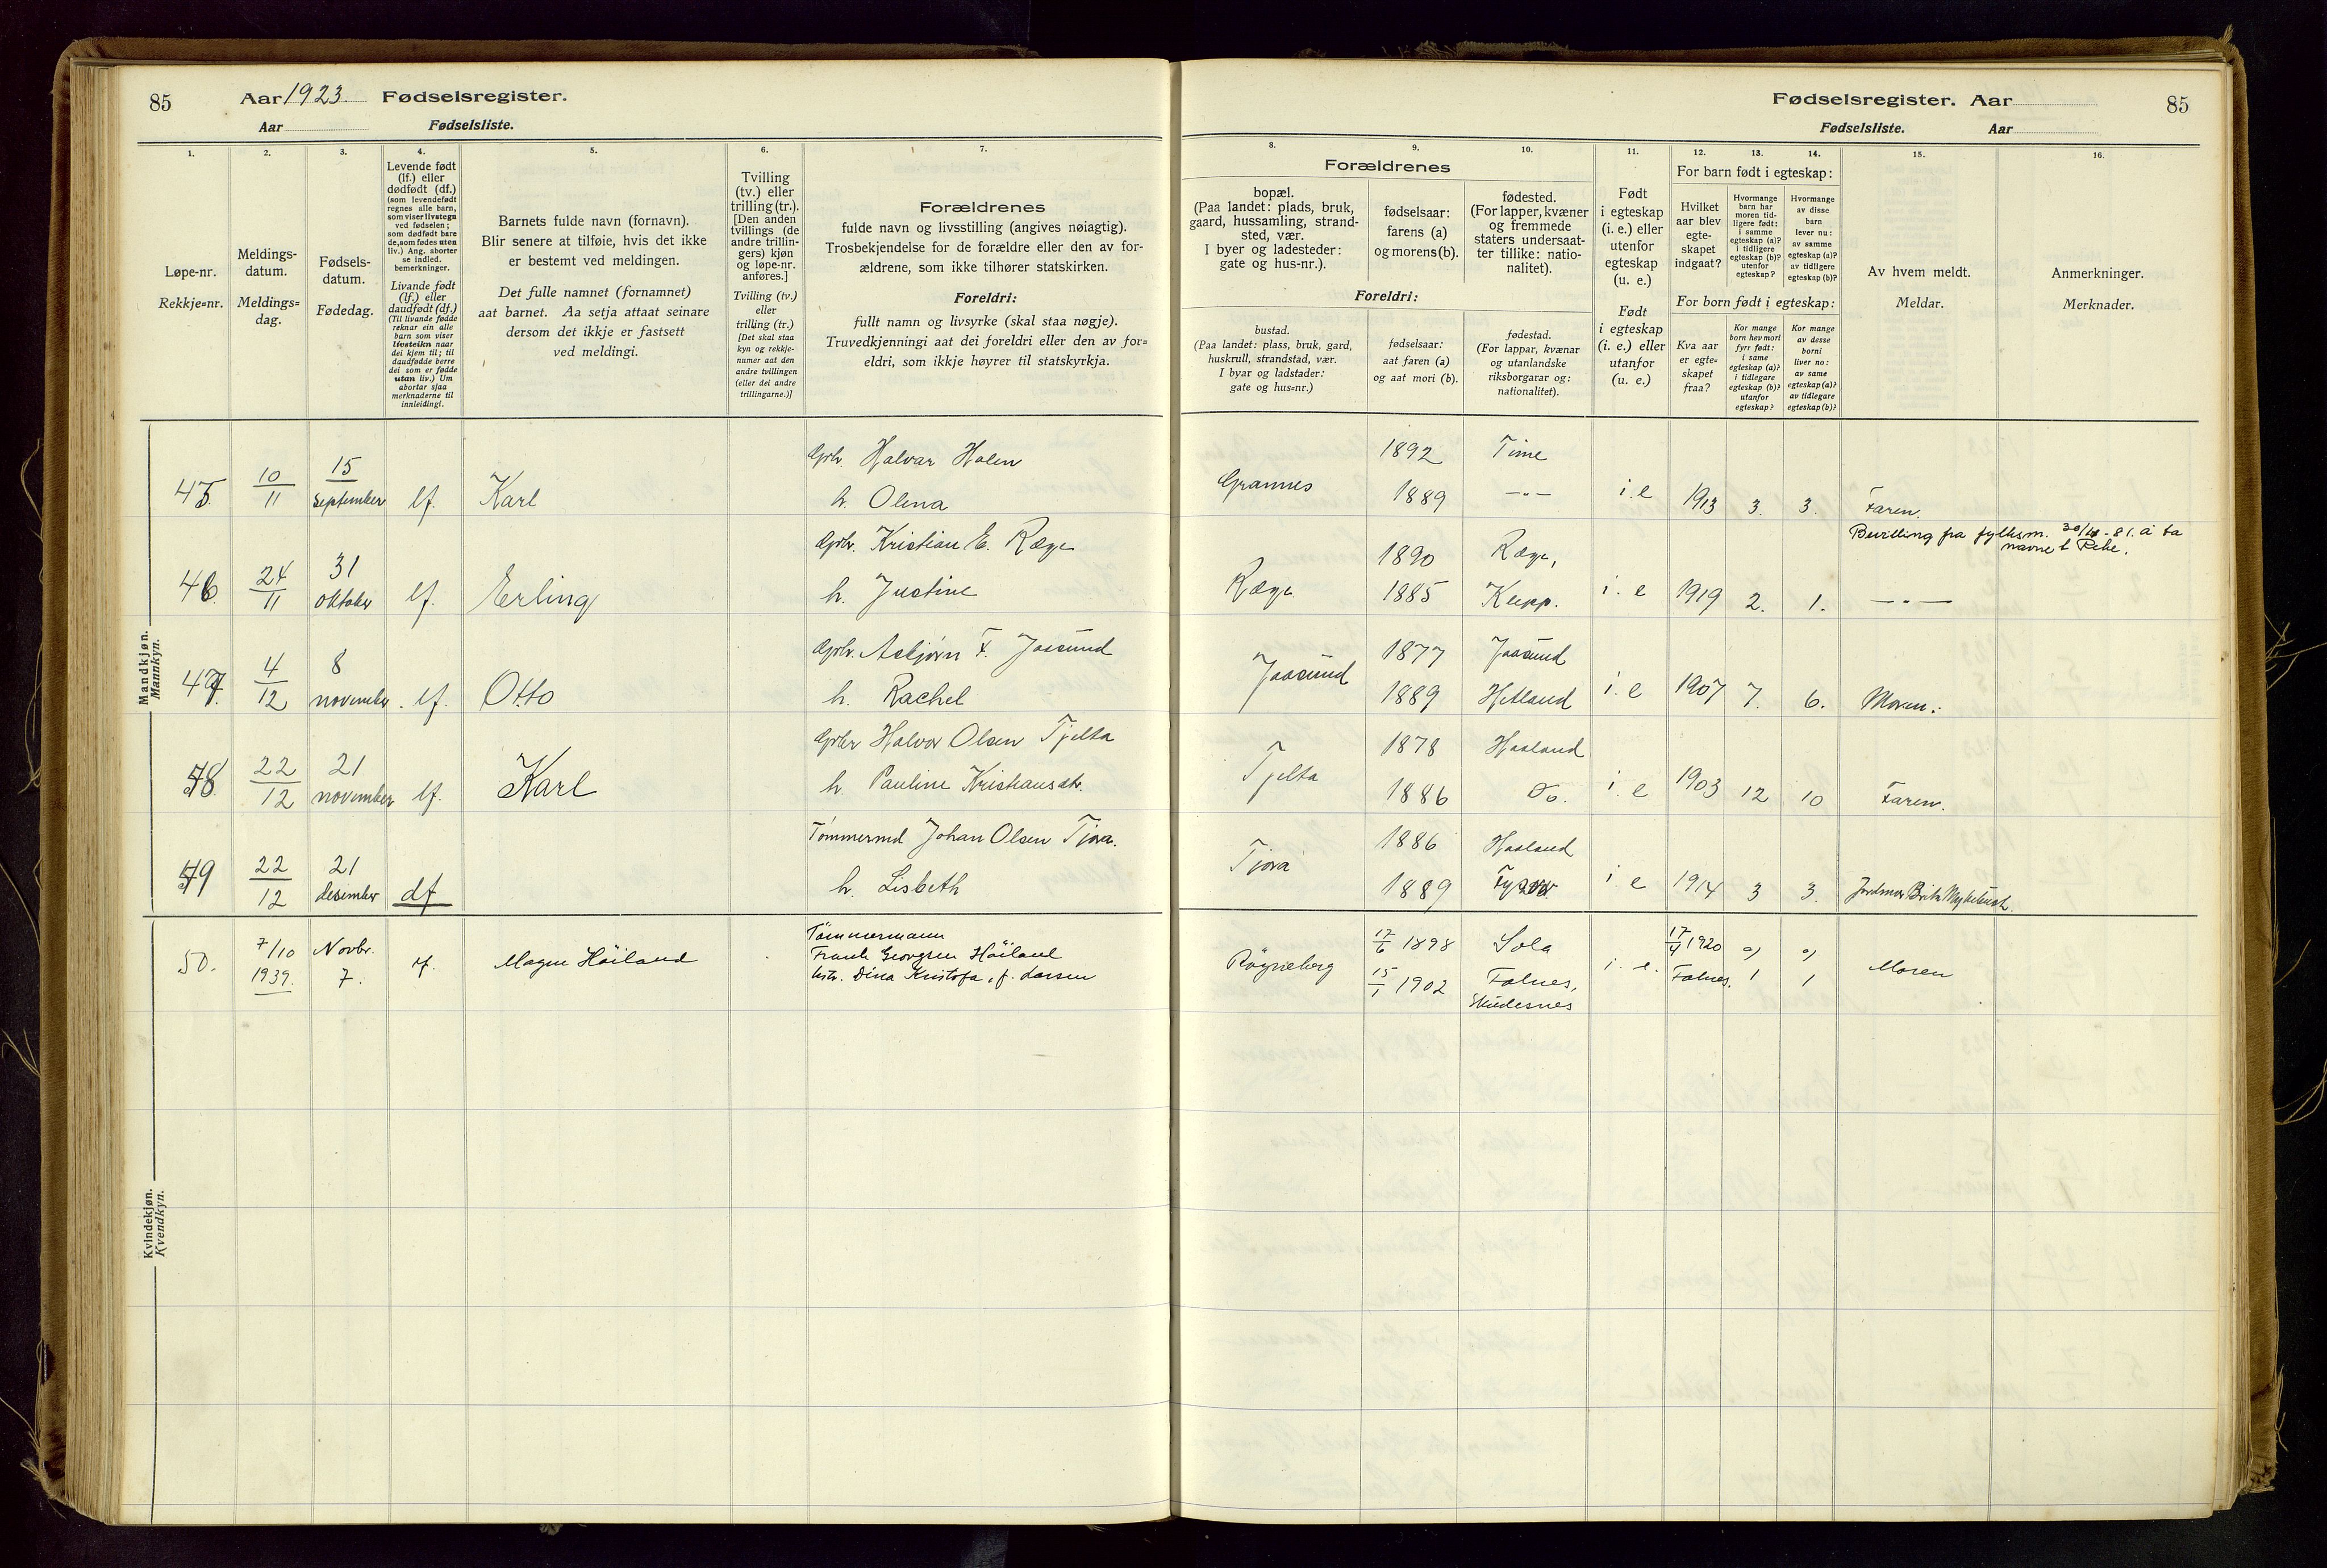 85
Aar 1923. Fødselsregister.
Aar Fødselsliste.
1.
2.
3.
4.
5.
6.
7.
Løpe-nr.
Rekkje=nr.
Meldings-
datum.
Meldings=
dag.
Fødsels-
datum.
Fødedag.
Levende født
(lf.) eller
dødfødt (df.)
(som levendefødt
regnes alle barn,
som viser livstegn
ved fødselen;
som dødfødt bare
de, som fødes uten
liv.) Ang. aborter
se indled.
bemerkninger.
Livande født
(lf.) eller
daudfødt (df.)
(Til livande fødde
reknar ein alle
barn som viser
livsteikn naar
dei kjem til; til
daudfødde berre
dei som er fødde
utan liv.) Um
abortar sjaa
merknaderne til
innleidingi.
Barnets fulde navn (fornavn).
Blir senere at tilføie, hvis det ikke
er bestemt ved meldingen.
Det fulle namnet (fornamnet)
aat barnet. Aa setja attaat seinare
dersom det ikkje er fastsett
ved meldingi.
Tvilling
(tv.) eller
trilling (tr.).
[Den anden
tvillings (de
andre trillin-
gers) kjøn
og løpe-nr.
anføres.]
Tvilling (tv.)
eller
trilling (tr.)
[Det skal staa
kyn og rekkje-
numer aat den
andre tvillingen
(eller dei andre
trillingarne.)]
Forældrenes
fulde navn og livsstilling (angives nøiagtig).
Trosbekjendelse for de forældre eller den av for-
ældrene, som ikke tilhører statskirken.
Foreldri:
fullt namn og livsyrke (skal staa nøgje).
Truvedkjenningi aat dei foreldri eller den av for=
eldri, som ikkje høyrer til statskyrkja.
Mandkjøn.
Mannkyn.
45 10/11 15 september lf. Karl
Gprbr. Halvar Holen
h. Olena
46 24/11 31 oktober lf. Erling
Gprbr. Kristian E. Ræge
h. Justine
47. 4/12 8 november. lf. Otto
Gprbr. Asbjørn T. Joasund
h. Rachel
48 22/12 21 november lf. Karl
Gprbr Halvor Olsen Tjelta
h. Pauline Kristiansdtr.
49 22/12 21 desember df
Tømmermd Johan Olsen Tjora.
h. Lisbeth
50. 7/10 1939. Novbr. 7. lf. Magne Höiland
Tömmermann
Frank Georgsen Höiland
hstr. Dina Kristofa, f. Larsen
Kvindekjøn.
Kvendkyn.
Fødselsregister. Aar
85
Fødselsliste. Aar
8.
9.
10.
11.
12.
13.
14.
15.
16.
Forældrenes
bopæl.
(Paa landet: plads, bruk,
gaard, hussamling, strand-
sted, vær.
I byer og ladesteder:
gate og hus-nr.).
fødselsaar:
farens (a)
og morens (b).
fødested.
(For lapper, kvæner
og fremmede
staters undersaat-
ter tillike: natio-
nalitet).
Foreldri:
bustad.
(Paa landet: plass, bruk, gard,
huskrull, strandstad, vær.
I byar og ladstader:
gate og hus=nr.)
fødselsaar:
aat faren (a)
og aat mori (b).
fødestad.
(For lappar, kvænar
og utanlandske
riksborgarar og:
nationalitet).
Født
i egteskap
(i. e.) eller
utenfor
egteskap
(u. e.)
Født
i egteskap
(i. e.) eller
utanfor
(u. e.)
For barn født i egteskap:
Hvilket
aar blev
egte-
skapet
indgaat?
Hvormange
barn har
moren tid-
ligere født:
i samme
egteskap (a)?
i tidligere
egteskap (b)?
utenfor
egteskap?
Hvormange
av disse
barn
lever nu:
av samme
egteskap (a)?
av tidligere
egteskap (b)?
For born født i egteskap:
Kva aar
er egte=
skapet
fraa?
Kor mange
born hev mori
fyrr født:
i same
egteskap (a)?
i tidlegare
egteskap (b)?
utanfor
egteskap?
Kor mange
av desse
borni
liver no:
av same
egteskap (a)?
av tidlegare
egteskap (b)?
Av hvem meldt.
Meldar.
Anmerkninger.
Merknader.
Grannes 1892 Time
1889 —"— i. e 1913 3. 3. Faren.
Bevilling fra fylksm. 30/10-81. å ta
navnet Rehe.
Ræge 1890 Ræge,
1885 Klepp. i. e 1919 2. 1. —"—
Joasund 1877 Joasund
1889 Hetland i. e 1907 7. 6. Moren.
Tjelta 1878 Haaland
1886 Do. i. e 1903 12 10 Faren.
Tjora 1886 Haaland
1889 i. e 1914 3 3. Jordmor Brita Myklebust.
Röyneberg 17/6 1898 Sola
15/1 1902 Falnes,
Skudesnes i. e. 17/4 1920 Falnes. a) 1 a) 1 Moren